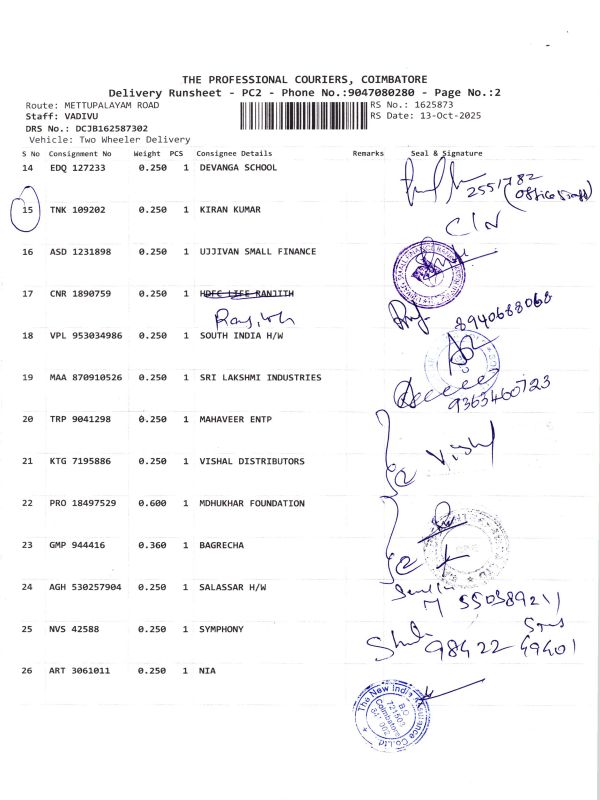 THE PROFESSIONAL COURIERS, COIMBATORE
Delivery Runsheet - PC2 - Phone No.:9047080280 - Page No.:2
Route: METTUPALAYAM ROAD RS No.: 1625873
Staff: VADIVU RS Date: 13-Oct-2025
DRS No.: DCJB162587302
Vehicle: Two Wheeler Delivery
S No Consignment No Weight PCS Consignee Details Remarks Seal & Signature
14 EDQ 127233 0.250 1 DEVANGA SCHOOL
2551782
(Office Staff)
15 TNK 109202 0.250 1 KIRAN KUMAR
C/N
16 ASD 1231898 0.250 1 UJJIVAN SMALL FINANCE
17 CNR 1890759 0.250 1 HDFC LIFE RANJITH
Ranjith
8940688068
18 VPL 953034986 0.250 1 SOUTH INDIA H/W
19 MAA 870910526 0.250 1 SRI LAKSHMI INDUSTRIES
9363460723
20 TRP 9041298 0.250 1 MAHAVEER ENTP
21 KTG 7195886 0.250 1 VISHAL DISTRIBUTORS
Vishal
22 PRO 18497529 0.600 1 MDHUKHAR FOUNDATION
23 GMP 944416 0.360 1 BAGRECHA
24 AGH 530257904 0.250 1 SALASSAR H/W
25 NVS 42588 0.250 1 SYMPHONY
98422 49401
26 ART 3061011 0.250 1 NIA
The New India Assurance Co.Ltd.
B.O
721503
Coimbatore
641 002